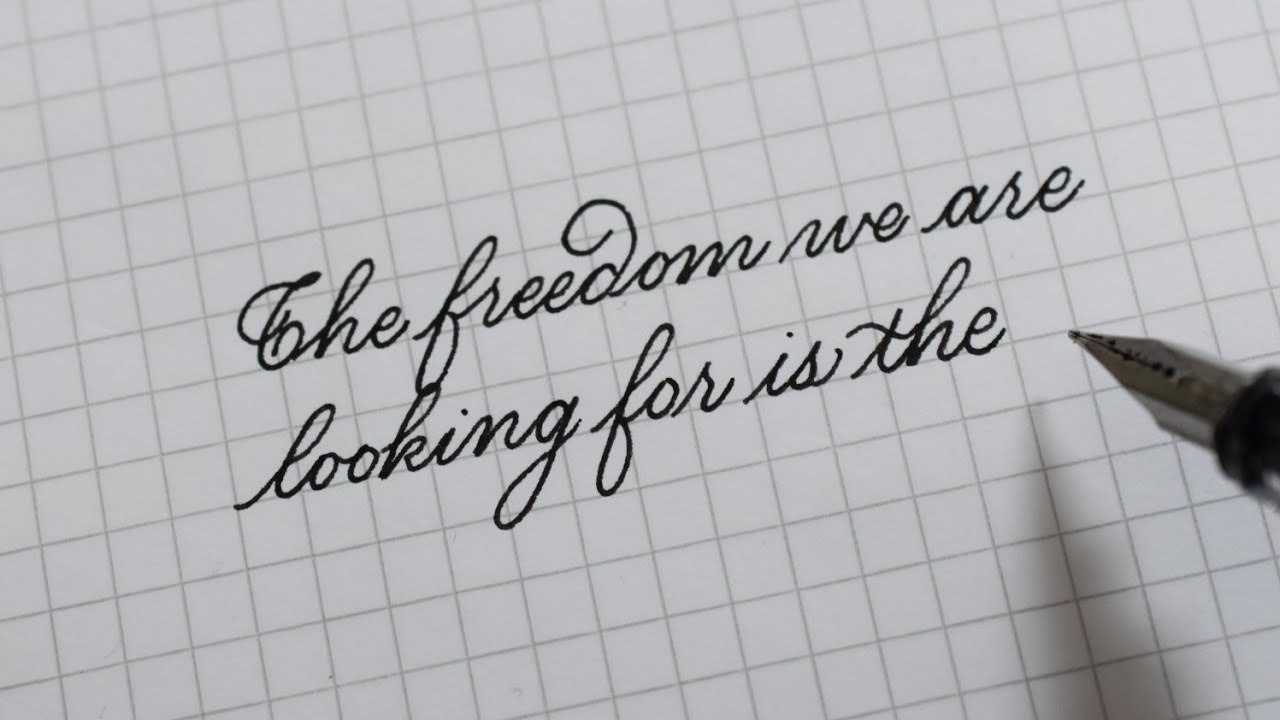 The freedom we are
looking for is the